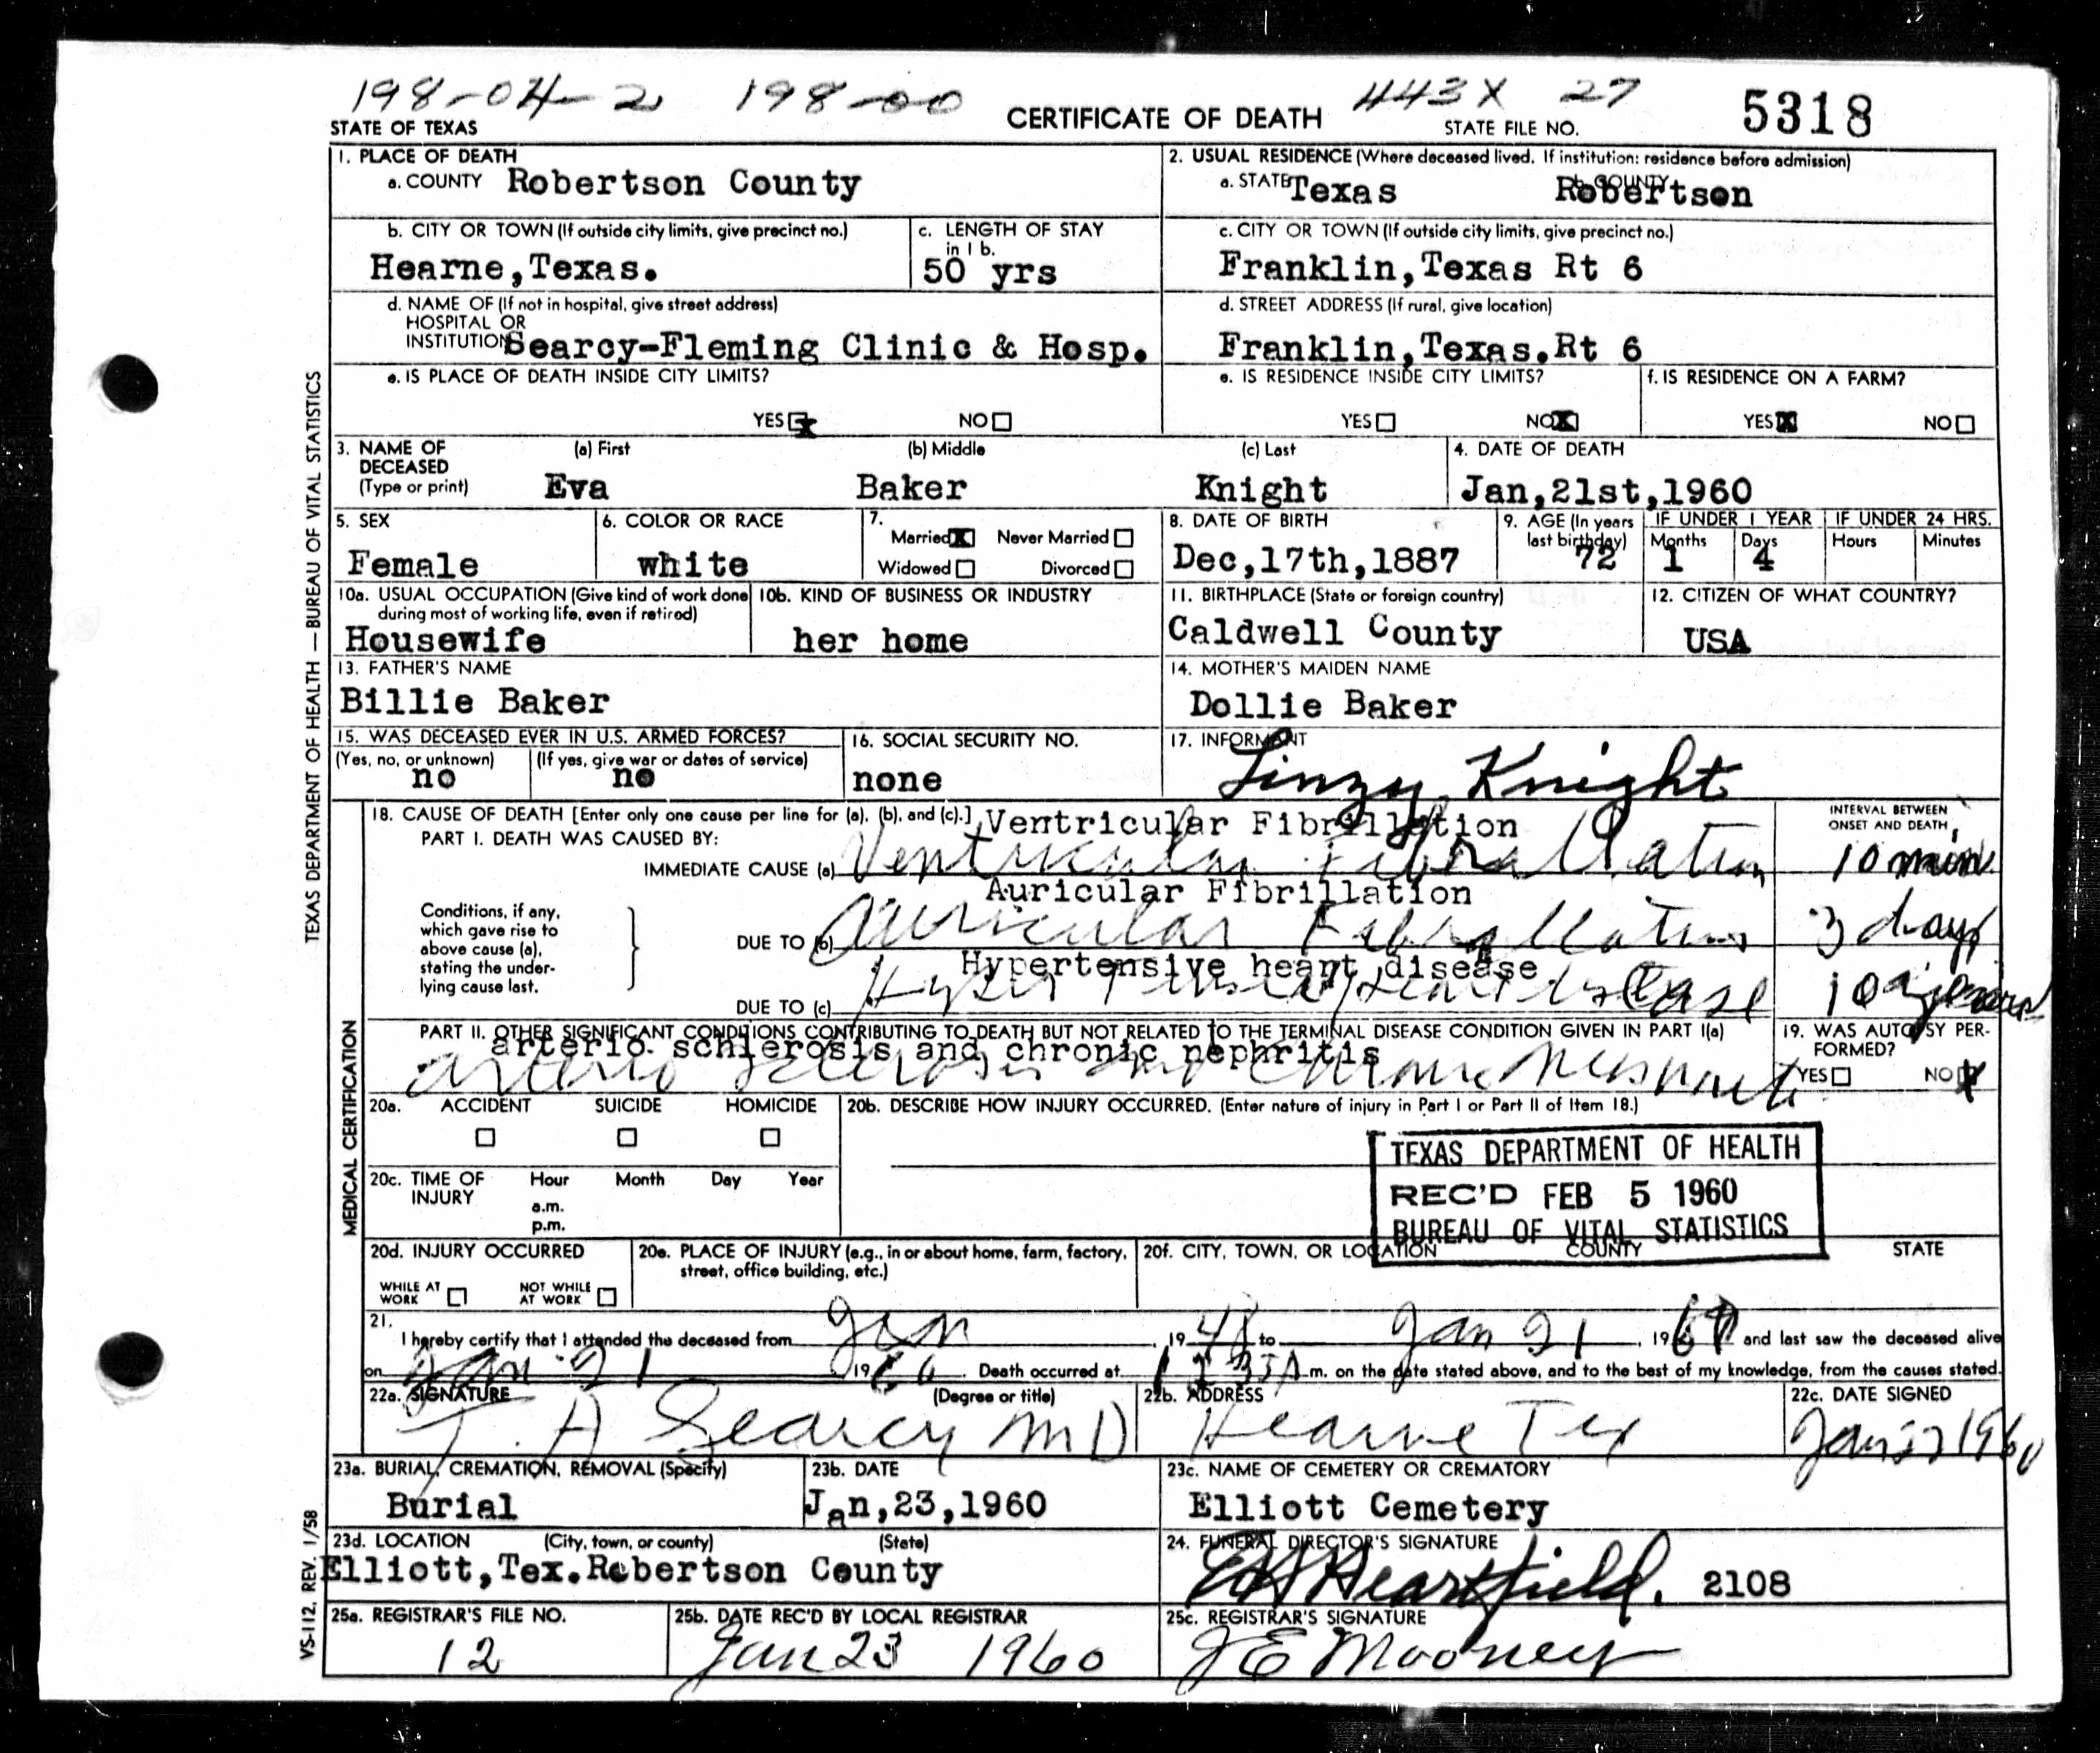 198-04-2 198-00 443X 27
STATE OF TEXAS CERTIFICATE OF DEATH STATE FILE NO. 5318
TEXAS DEPARTMENT OF HEALTH — BUREAU OF VITAL STATISTICS
1. PLACE OF DEATH
a. COUNTY Robertson County
2. USUAL RESIDENCE (Where deceased lived. If institution: residence before admission)
a. STATE Texas b. COUNTY Robertson
b. CITY OR TOWN (If outside city limits, give precinct no.)
Hearne,Texas.
c. LENGTH OF STAY
in 1 b.
50 yrs
c. CITY OR TOWN (If outside city limits, give precinct no.)
Franklin,Texas Rt 6
d. NAME OF (If not in hospital, give street address)
HOSPITAL OR
INSTITUTION Searcy-Fleming Clinic & Hosp.
d. STREET ADDRESS (If rural, give location)
Franklin,Texas.Rt 6
e. IS PLACE OF DEATH INSIDE CITY LIMITS?
YES X NO
e. IS RESIDENCE INSIDE CITY LIMITS?
YES NO X
f. IS RESIDENCE ON A FARM?
YES X NO
3. NAME OF DECEASED (Type or print)
(a) First (b) Middle (c) Last
Eva Baker Knight
4. DATE OF DEATH
Jan,21st,1960
5. SEX
Female
6. COLOR OR RACE
white
7.
Married X Never Married
Widowed Divorced
8. DATE OF BIRTH
Dec,17th,1887
9. AGE (In years
last birthday)
72
IF UNDER 1 YEAR
Months Days
1 4
IF UNDER 24 HRS.
Hours Minutes
10a. USUAL OCCUPATION (Give kind of work done
during most of working life, even if retired)
Housewife
10b. KIND OF BUSINESS OR INDUSTRY
her home
11. BIRTHPLACE (State or foreign country)
Caldwell County
12. CITIZEN OF WHAT COUNTRY?
USA
13. FATHER'S NAME
Billie Baker
14. MOTHER'S MAIDEN NAME
Dollie Baker
15. WAS DECEASED EVER IN U.S. ARMED FORCES?
(Yes, no, or unknown) (If yes, give war or dates of service)
no no
16. SOCIAL SECURITY NO.
none
17. INFORMANT
Linzy Knight
MEDICAL CERTIFICATION
18. CAUSE OF DEATH [Enter only one cause per line for (a), (b), and (c).]
PART I. DEATH WAS CAUSED BY:
INTERVAL BETWEEN
ONSET AND DEATH
Ventricular Fibrillation
IMMEDIATE CAUSE (a) Ventricular Fibrallation 10 min.
Auricular Fibrillation
Conditions, if any,
which gave rise to
above cause (a),
stating the under-
lying cause last.
DUE TO (b) Auricular Fibrallation 3 days
Hypertensive heart disease
DUE TO (c) Hypertensive heart disease 10 years
PART II. OTHER SIGNIFICANT CONDITIONS CONTRIBUTING TO DEATH BUT NOT RELATED TO THE TERMINAL DISEASE CONDITION GIVEN IN PART I(a)
arterio schlerosis and chronic nephritis
19. WAS AUTOPSY PER-
FORMED?
YES NO X
20a. ACCIDENT SUICIDE HOMICIDE
20b. DESCRIBE HOW INJURY OCCURRED. (Enter nature of injury in Part I or Part II of Item 18.)
TEXAS DEPARTMENT OF HEALTH
REC'D FEB 5 1960
BUREAU OF VITAL STATISTICS
20c. TIME OF
INJURY
Hour Month Day Year
a.m.
p.m.
20d. INJURY OCCURRED
WHILE AT
WORK
NOT WHILE
AT WORK
20e. PLACE OF INJURY (e.g., in or about home, farm, factory,
street, office building, etc.)
20f. CITY, TOWN, OR LOCATION COUNTY STATE
21.
I hereby certify that I attended the deceased from Jan, 1948 to Jan 21, 1960 and last saw the deceased alive
on Jan 21 1960. Death occurred at m. on the date stated above, and to the best of my knowledge, from the causes stated.
22a. SIGNATURE (Degree or title)
T. A Searcy MD
22b. ADDRESS
Hearne Tex
22c. DATE SIGNED
Jan 1960
23a. BURIAL, CREMATION, REMOVAL (Specify)
Burial
23b. DATE
Jan,23,1960
23c. NAME OF CEMETERY OR CREMATORY
Elliott Cemetery
23d. LOCATION (City, town, or county) (State)
Elliott,Tex.Robertson County
24. FUNERAL DIRECTOR'S SIGNATURE
Heartfield. 2108
VS-112, REV. 1/58
25a. REGISTRAR'S FILE NO.
12
25b. DATE REC'D BY LOCAL REGISTRAR
Jan 23 1960
25c. REGISTRAR'S SIGNATURE
J E Mooney